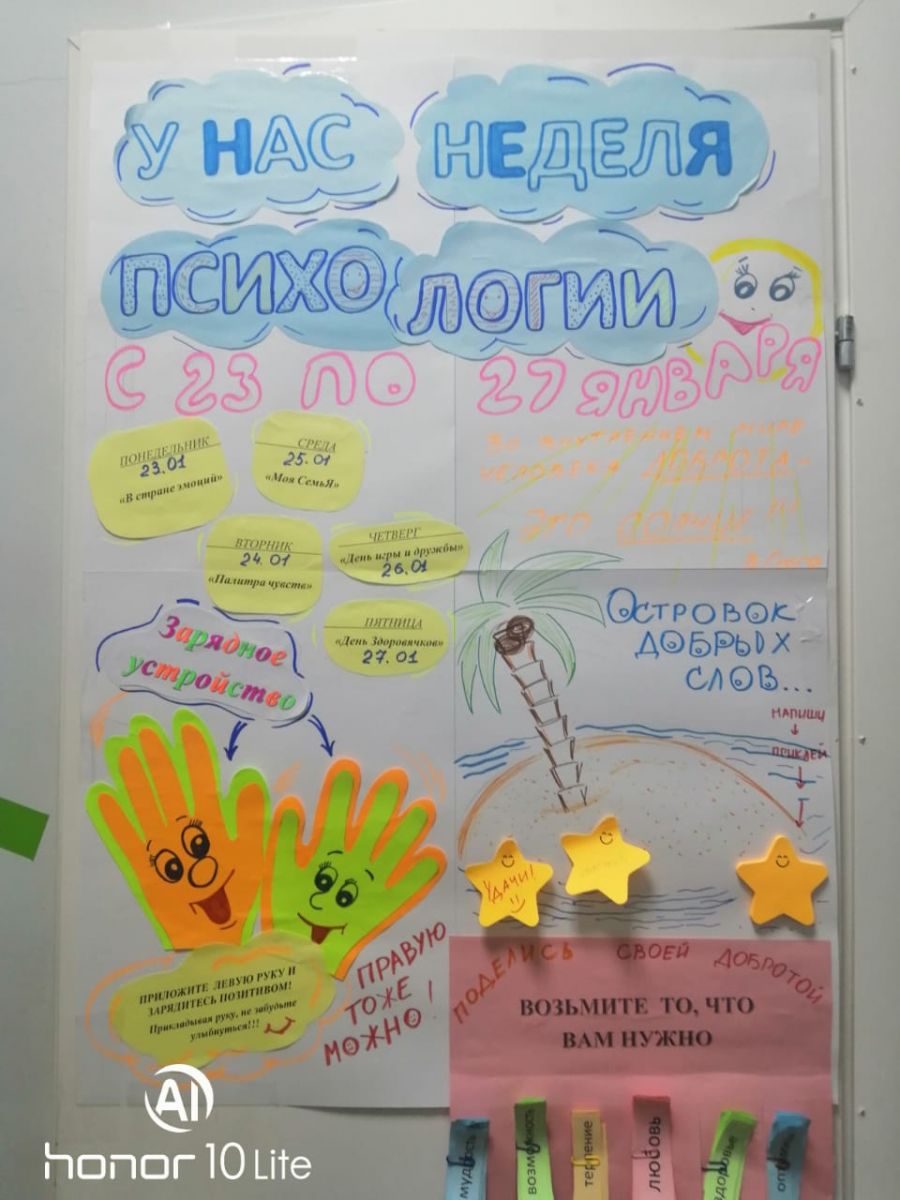 У НАС НЕДЕЛЯ
ПСИХОЛОГИИ
С 23 ПО 27 ЯНВАРЯ
ПОНЕДЕЛЬНИК
23.01
«В стране эмоций»
СРЕДА
25.01
«Моя СемьЯ»
ВТОРНИК
24.01
«Палитра чувств»
ЧЕТВЕРГ
«День игры и дружбы»
26.01
ПЯТНИЦА
«День Здоровячков»
27.01
ВО ВНУТРЕННЕМ МИРЕ
ЧЕЛОВЕКА ДОБРОТА -
ЭТО СОЛНЦЕ!!!
Зарядное
устройство
ПРИЛОЖИТЕ ЛЕВУЮ РУКУ И
ЗАРЯДИТЕСЬ ПОЗИТИВОМ!
Прикладывая руку, не забудьте
улыбнуться!!!
ПРАВУЮ
ТОЖЕ
МОЖНО!
ОСТРОВОК
ДОБРЫХ
СЛОВ...
НАПИШИ
ПРИКЛЕЙ
УДАЧИ!
ПОДЕЛИСЬ СВОЕЙ ДОБРОТОЙ
ВОЗЬМИТЕ ТО, ЧТО
ВАМ НУЖНО
мудрость
возможность
терпение
любовь
здоровье
AI
honor 10 Lite